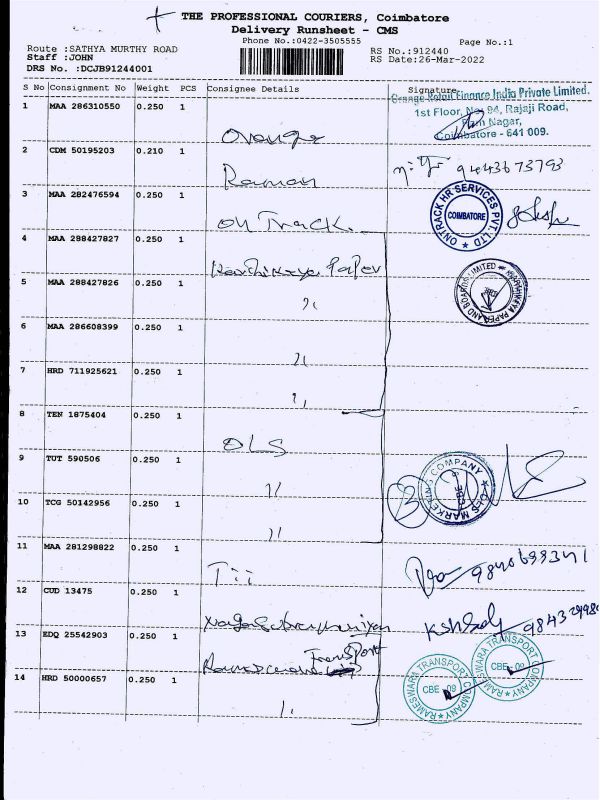 THE PROFESSIONAL COURIERS, Coimbatore
Delivery Runsheet - CMS
Phone No.:0422-3505555
Page No.:1
Route :SATHYA MURTHY ROAD
Staff :JOHN
DRS No. :DCJB91244001
RS No.:912440
RS Date:26-Mar-2022
S No Consignment No Weight PCS Consignee Details Signature
Orange Retail Finance India Private Limited,
1st Floor, No: 94, Rajaji Road,
Ram Nagar,
Coimbatore - 641 009.
1 MAA 286310550 0.250 1 Orange
2 CDM 50195203 0.210 1 Raman 9443673793
3 MAA 282476594 0.250 1 On Track
ONTRACK HR SERVICES PVT. LTD
COIMBATORE
4 MAA 288427827 0.250 1 Karthikeya Paper
KARTHIKEYA PAPER AND BOARDS LIMITED
5 MAA 288427826 0.250 1 ''
6 MAA 286608399 0.250 1 ''
7 HRD 711925621 0.250 1 ''
8 TEN 1875404 0.250 1 OLS
9 TUT 590506 0.250 1 ''
OLS MARKETING COMPANY
10 TCG 50142956 0.250 1 ''
11 MAA 281298822 0.250 1 Tii
12 CUD 13475 0.250 1 Nagasubramaniyan
13 EDQ 25542903 0.250 1 Transport
RAMESWARA TRANSPORT COMPANY
CBE - 09
14 HRD 50000657 0.250 1 ''
RAMESWARA TRANSPORT COMPANY
CBE - 09